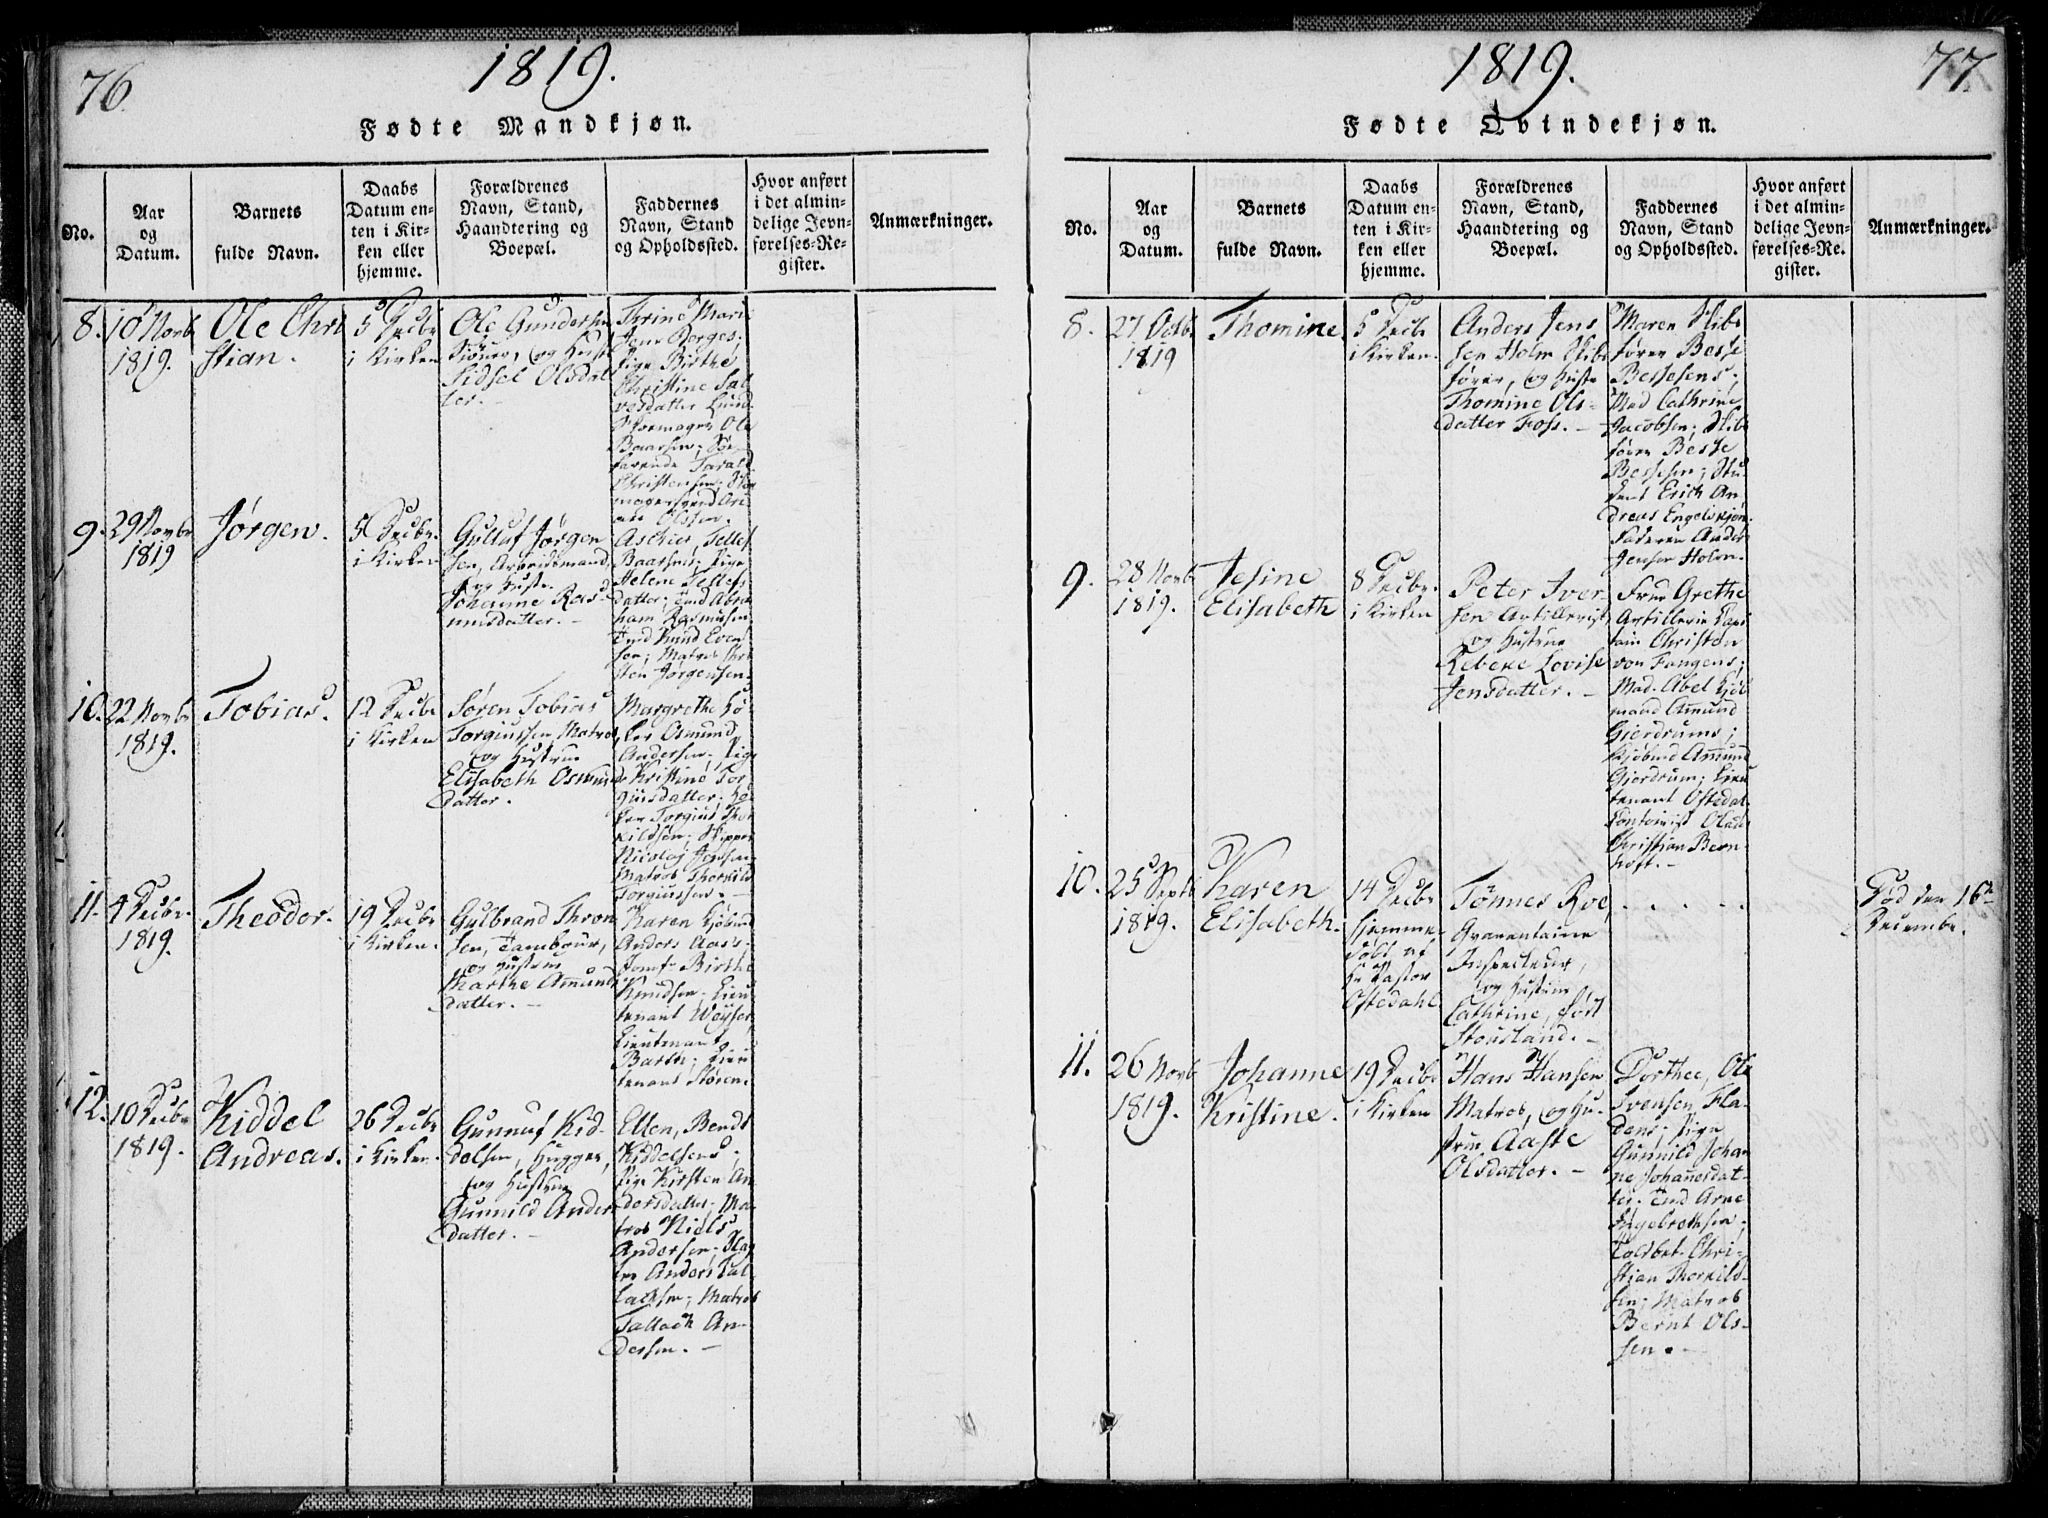 76.
1819.
Fødte Mandkjøn.
No.
Aar
og
Datum.
Barnets
fulde Navn.
Daabs
Datum en-
ten i Kir-
ken eller
hjemme.
Forældrenes
Navn, Stand,
Haandtering og
Boepæl.
Faddernes
Navn, Stand
og Opholdssted.
Hvor anført
i det almin-
delige Jevn-
førelses-Re-
gister.
Anmærkninger.
8.
10 Novb
1819.
Ole Chri
stian.
5 Decbr
i Kirken
Ole Gundersen
og Hustr
Sidsel Olsdat
ter.
Thrine Mari
Jens Borges;
Pige Birthe
Christine Sal
vesdatter Lund
Skomager Ole
Baarsen; Søe
farende Tarald
Christensen;
Olsen.
9.
29 Novbr
1819
Jørgen.
5 Decbr.
i Kirken
Guttuf Jørgen
sen, Arbeidsmand,
og Hustr.
Johanne Ras
musdatter. —
Aschier Tellef
Baarsens; Pige
Helene Tellefs
datter; Abra
ham Rasmusen
Knud Even
sen; Matros Chri
sten Jørgensen.
10.
22 Novbr
1819.
Tobias.
12 Decbr
i Kirken
Søren Tobias
Torgiussen Matros
og Hustrue
Elisabeth Osmund
datter.
Margrethe
Osmund
Andersen; Pige
Kristine Tor
giusdatter;
Torgius Thor
kildsen; Skipper
Nicolaj Jensen
Matros Thorkild
Torgiussen. —
11.
4 Decbr.
1819.
Theodor.
19 Decbr
i Kirken.
Gulbrand Thron
sen, Tambour,
og Hustrue
Marthe Amund
datter. —
Karen Kjøbmd
Anders Aass;
Jomfr Birthe
Knudsen; Lieu
tenant Weyser
Lieutenant
Barth; Lieu
tenant Støren.
12.
10 Decbr
1819.
Kiddel
Andreas.
26 Decbr
i Kirken.
Gunnuf Kid-
delsen, Hugger,
og Hustrue
Gunnild Ander
datter. —
Ellen, Bendt
Kiddelsens;
Pige Kirsten An
dersdatter; Ma
tros Niels
Andersen;
Anders Tal
lachsen; Matros
Tallach An-
dersen. —
1819.
77.
Fødte Qvindekjøn.
No.
Aar
og
Datum.
Barnets
fulde Navn.
Daabs
Datum en-
ten i Kir-
ken eller
hjemme.
Forældrenes
Navn, Stand,
Haandtering og
Boepæl.
Faddernes
Navn, Stand
og Opholdssted.
Hvor anført
i det almin-
delige Jevn-
førelses-Re-
gister.
Anmærkninger.
8.
27 Octbr
1819
Thomine.
5 Decbr
i Kirken.
Anders Jens
sen Holm Skibs
fører, og Hustr
Thomine Ols-
datter Foss. —
Maren Skibs
fører Besse
Bessesens;
Mad Cathrine
Jacobsen; Skibs
fører Besse
Bessesen; Stu
dent Erich An
dreas Engelskjøn
Faderen Anders
Jensen Holm.
9.
28 Novb
1819.
Jesine
Elisabeth
8 Decbr.
i Kirken
Peter Iver
sen Artillerist
og Hustrue
Rebeke Lovise
Jensdatter. —
Frue Grethe
Artillerie Capi
tain Christen
von Fangens;
Mad. Abel Kjøb
mand Amund
Gjerdrums;
Kjøbmd Amund
Gjerdrum; Lieu
tenant Oftedal
Contoirist
Christian Bern
hoft. —
10.
25 Septb
1819.
Karen
Elisabeth.
14 Decbr
hjemme
døbt af
Hr Pastor
Oftedahl
Tönnes Roe,
Qvarantaine
Inspecteur,
og Hustrue
Cathrine, født
Stousland. —
Død den 16de
Decembr.
11.
26 Novb
1819.
Johanne
Kristine.
19 Decbr
i Kirken
Hans Hansen
Matros, og Hu-
strue Aaste
Olsdatter. —
Dorthee, Ole
Svensen Fla-
dens; Pige
Gunnild Johan
ne Johannesdat-
ter; Arne
Ingebrethsen;
Toldbet. Chri-
stian Thorkild-
sen; Matros
Bernt Ols-
sen. —